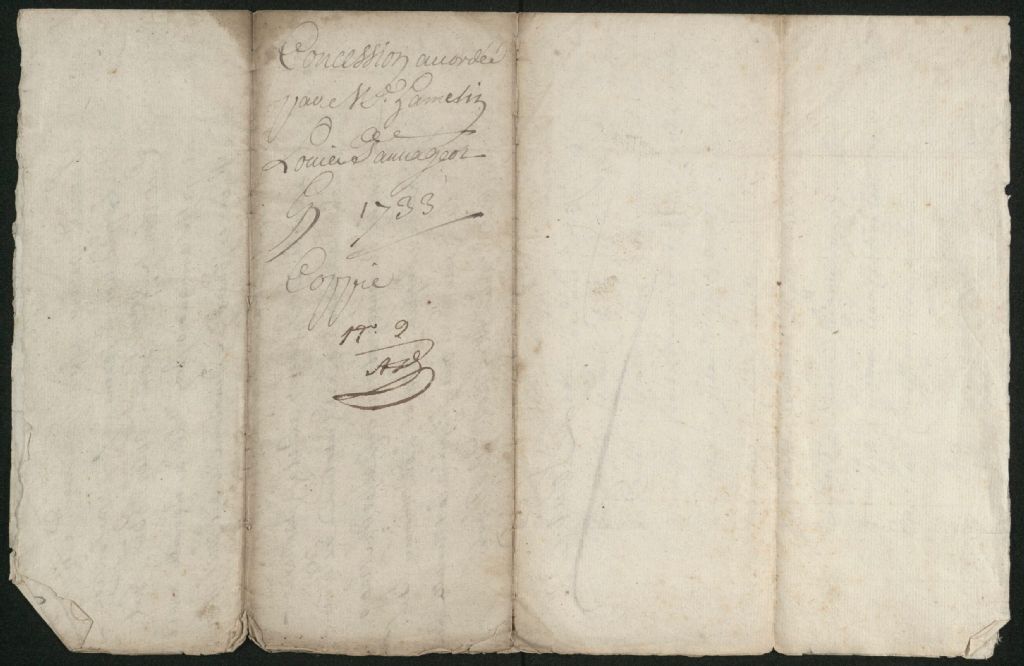 Concession accordée
par Mr. Gamelin
a
Louis Sauvageot
1733
Coppie
No. 2